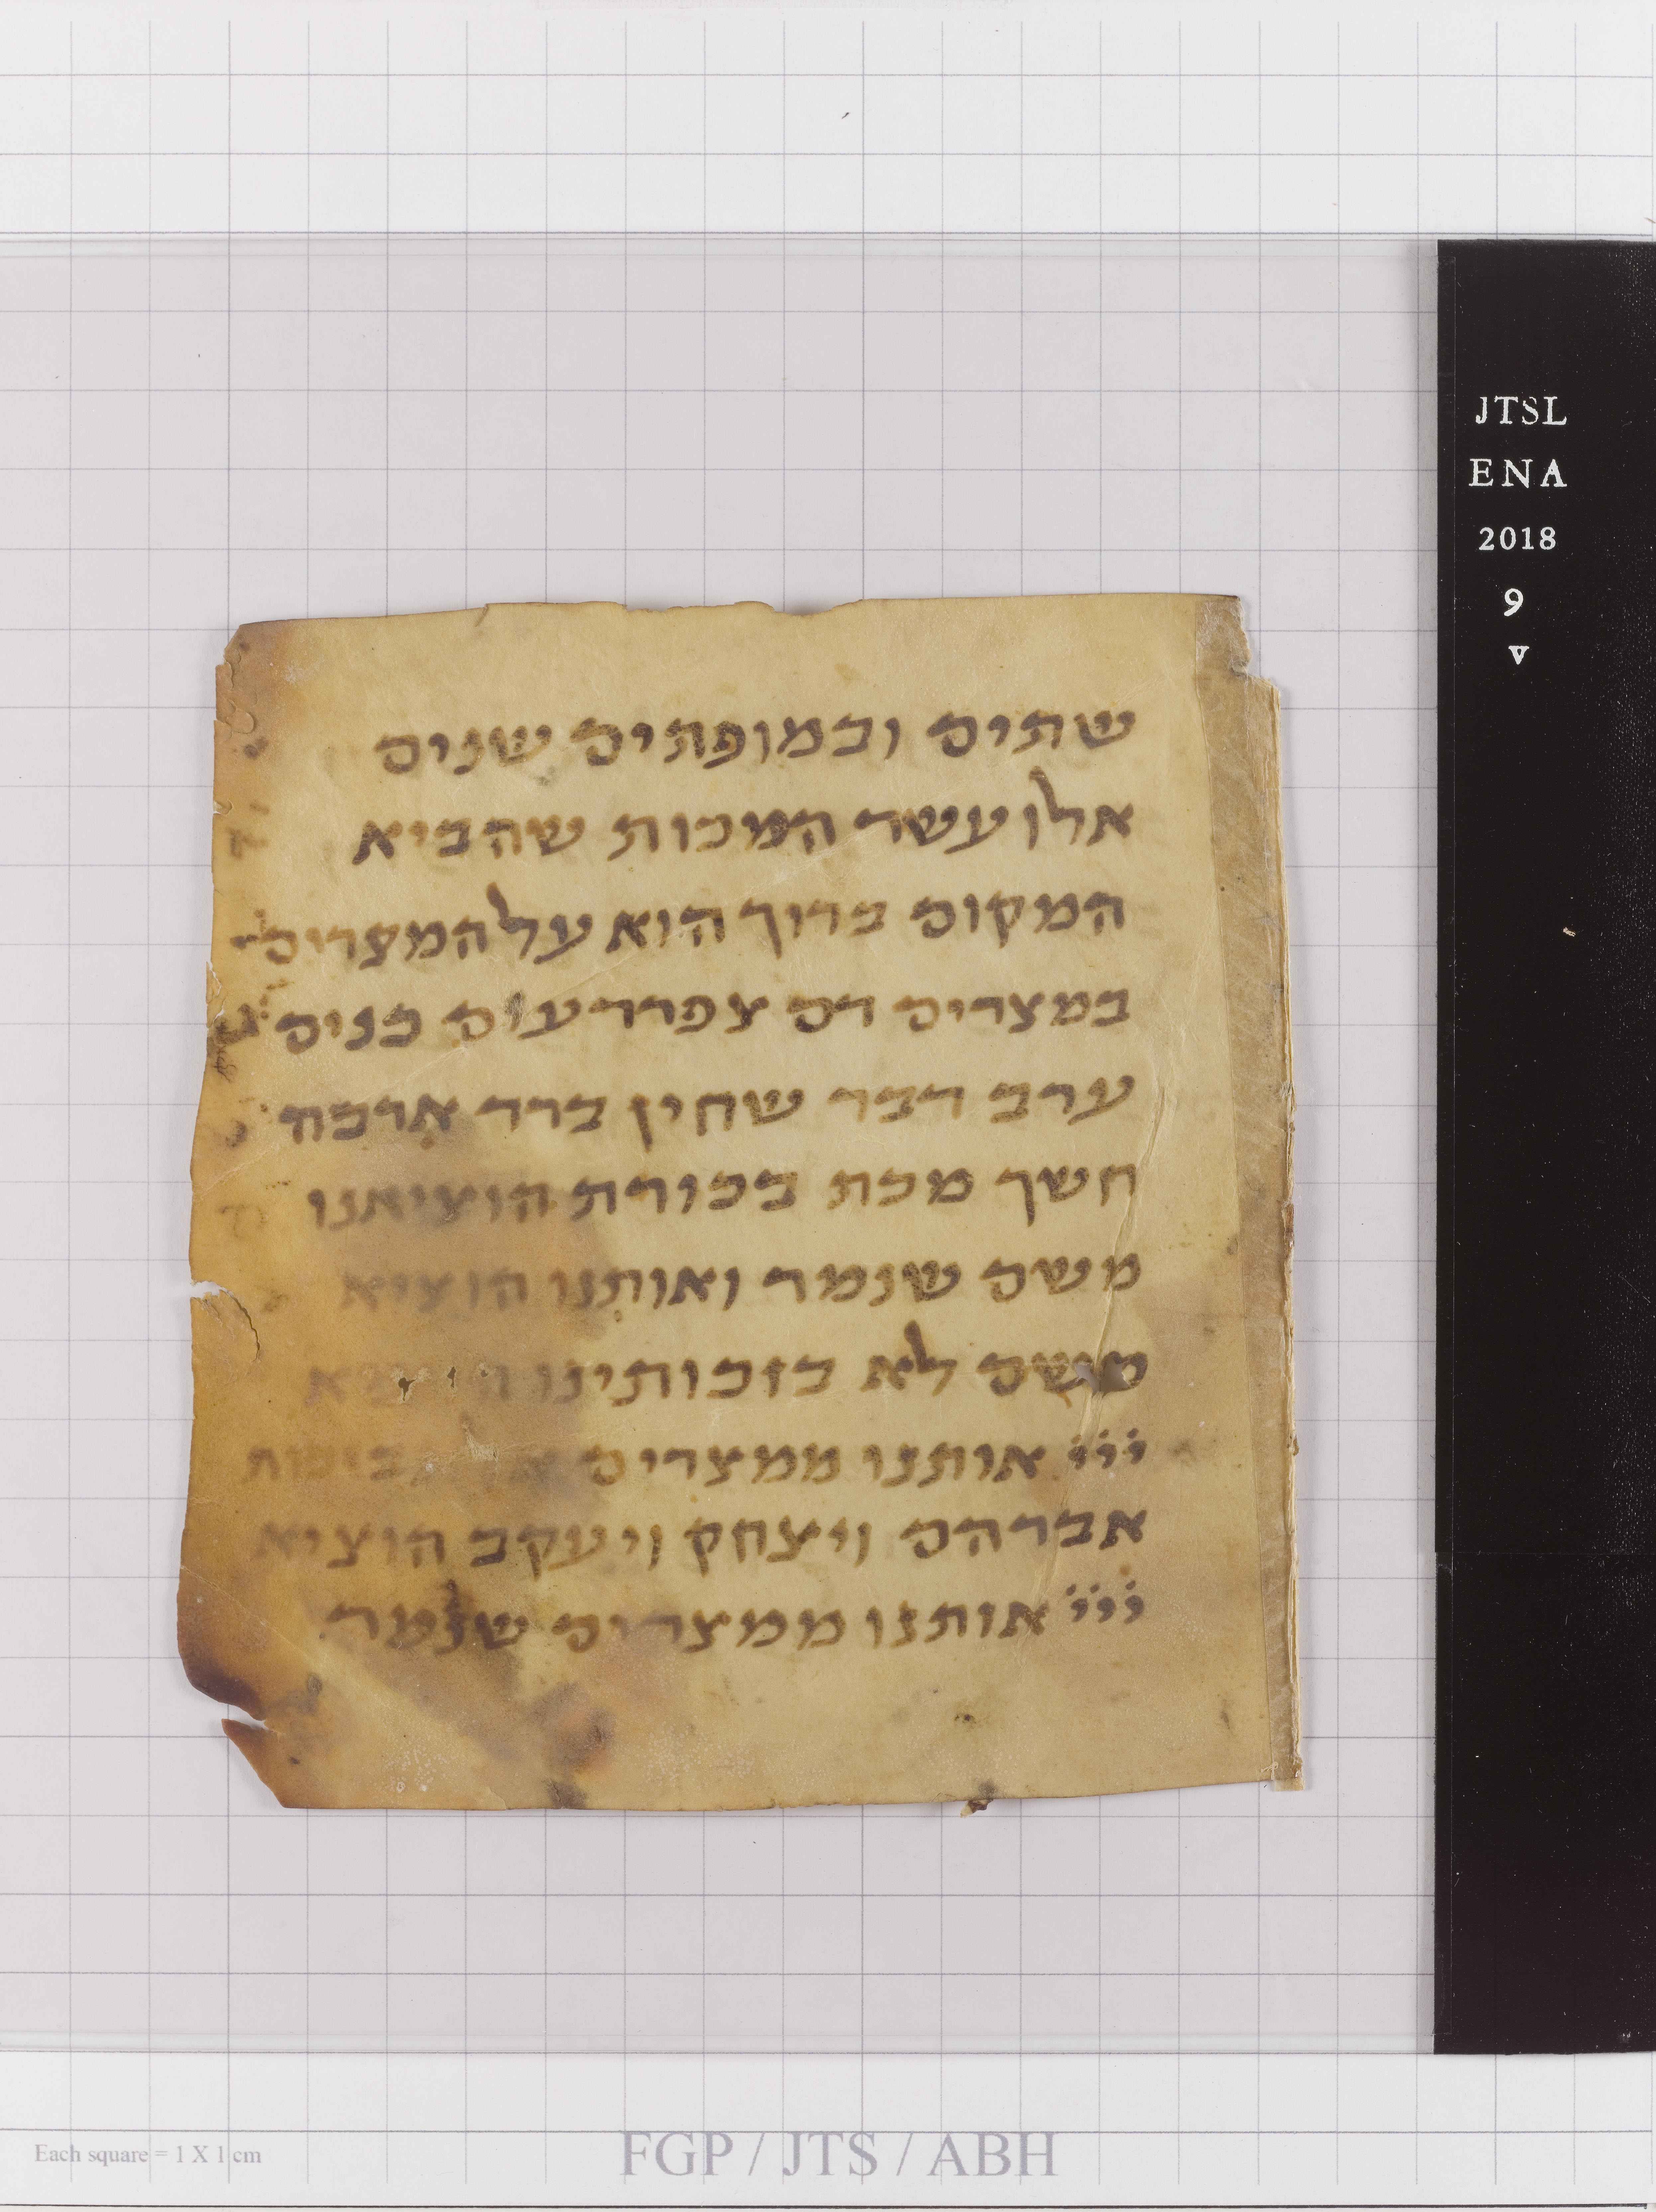 שתים ובמופתים שנים
אלו עשר המכות שהביא
המקום ברוך הוא על המצרים
במצרים דם צפרדעים כנים
ערב דבר שחין ברד ארבה
חשך מכת בכורת הוציאנו
משם שנמר ואותנו הוציא
משם לא בזכותינו
ייי אותנו ממצרים
אברהם ויצחק ויעקב הוציא
ייי אותנו ממצרים שנמר
JTSL
ENA
2018
9
v
Each square = 1 X 1 cm
FGP / JTS / ABH